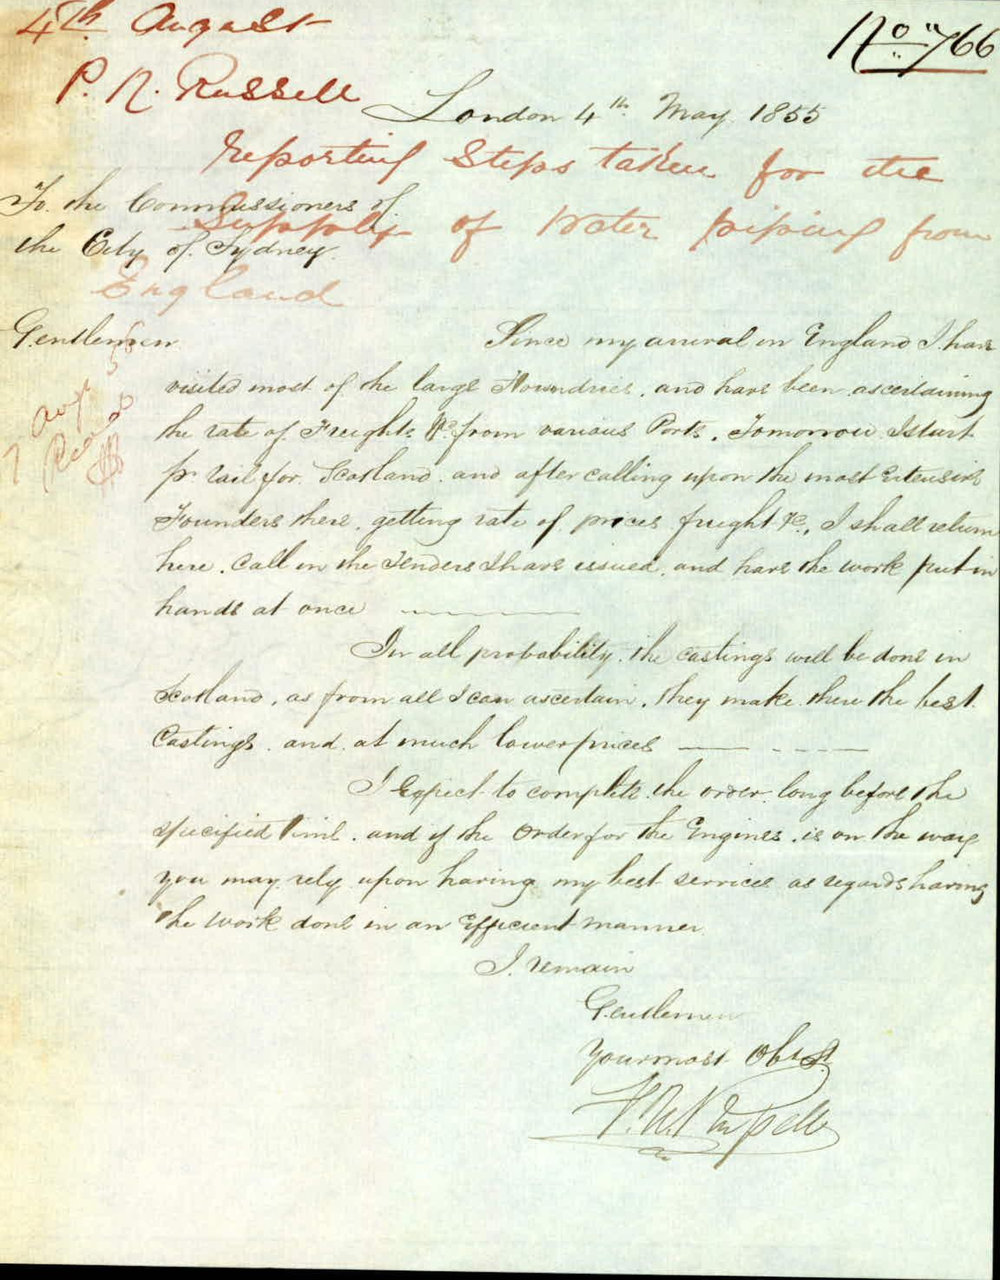 4th August
No 766
P. N. Russell
London 4th May 1855
reporting steps taken for the
To the Commissioners of
Supply of Water piping from
the City of Sydney
England
Gentlemen
Since my arrival in England I have
visited most of the large Foundries, and have been ascertaining
7 Aug 55
the rate of Freights &c. from various Ports. Tomorrow I start
Read
pr rail for Scotland, and after calling upon the most Extensive
Founders there, getting rate of prices freight &c., I shall return
here, Call in the Tenders I have issued, and have the work put in
hands at once
In all probability, the castings will be done in
Scotland, as from all I can ascertain, they make there the best
Castings, and at much lower prices
I Expect to complete the order long before the
specified time, and if the Order for the Engines, is on the way
you may rely upon having my best services as regards having
the work done in an Efficient manner
I remain
Gentlemen
Your most Obt St
P. N. Russell